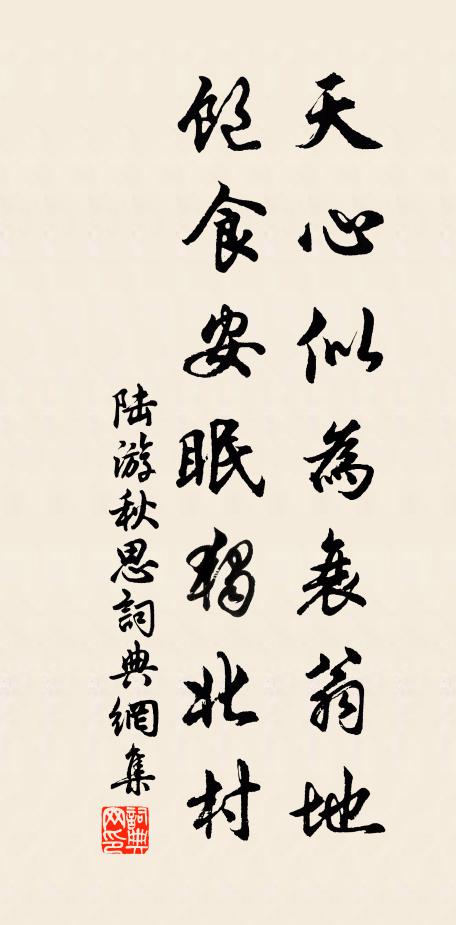 天心似為衰翁地
飽食安眠獨北村
陸游秋思詞典網集
詞典網印